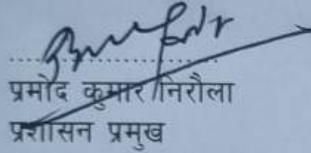 प्रमोद कुमार निरौला
प्रशासन प्रमुख